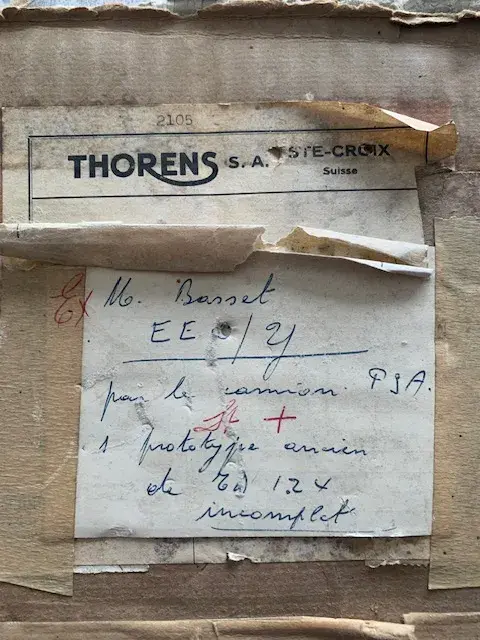 2105
THORENS S. A. STE-CROIX
Suisse
Ex M. Basset
EE
par le camion P S A.
+
1 prototype ancien
de 124
incomplet